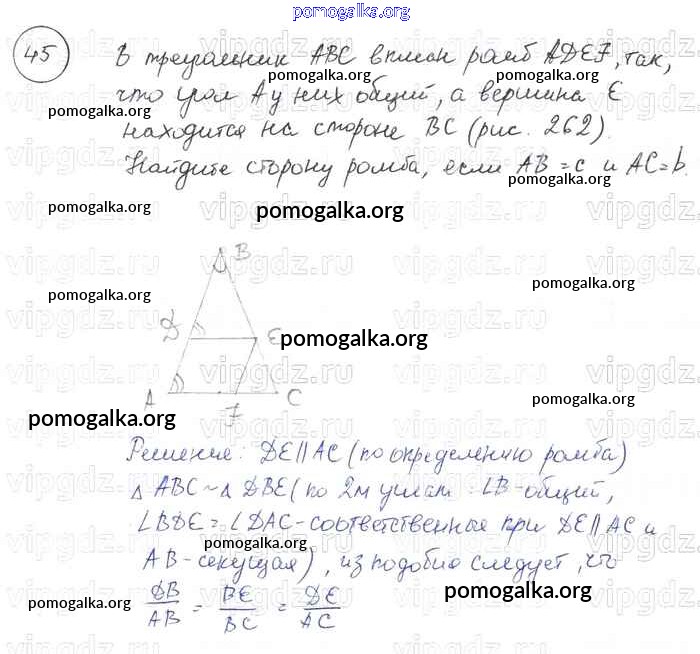 pomogalka.org
45 В треугольник ABC вписан ромб ADEF, так,
что угол A у них общий, а вершина E
находится на стороне BC (рис. 262).
Найдите сторону ромба, если AB = c и AC = b.
pomogalka.org
pomogalka.org
pomogalka.org
pomogalka.org
pomogalka.org
pomogalka.org
vipgdz.ru
B
pomogalka.org
pomogalka.org
D E pomogalka.org
A F C
pomogalka.org
pomogalka.org
Решение: DE || AC (по определению ромба)
Δ ABC ~ Δ DBE (по 2м углам: ∠B - общий,
∠BDE = ∠DAC - соответственные при DE || AC и
AB - секущая), из подобия следует, что
pomogalka.org
DB/AB = BE/BC = DE/AC
pomogalka.org
pomogalka.org
pomogalka.org